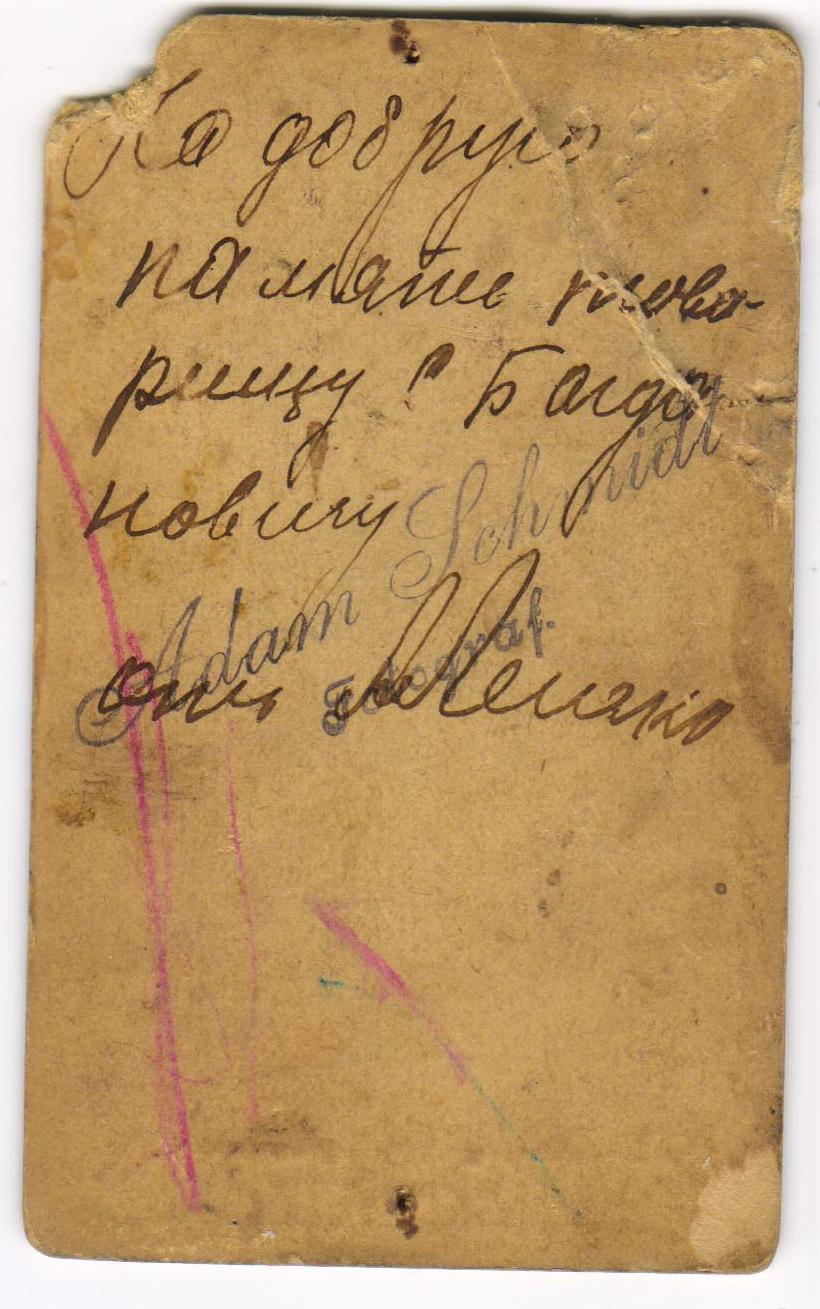 На добрую
память това-
рищу Богда
новичу
отъ
Adam Schmidt
Fotograf.